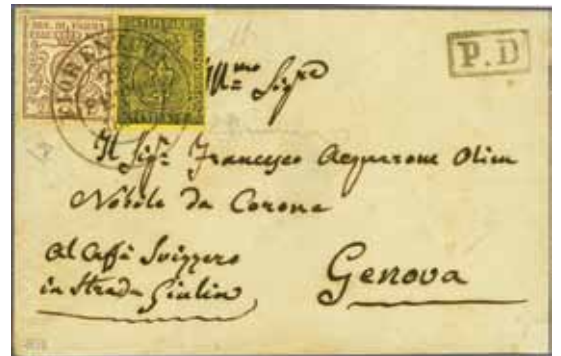 DUC. DI PARMA
FIORENZUOLA
P.D
Ill.mo Sigre
Il Sigr. Francesco Acquarone Olim
Nobile Da Corona
Al Caffè Svizzero
in Strada Giulia
Genova